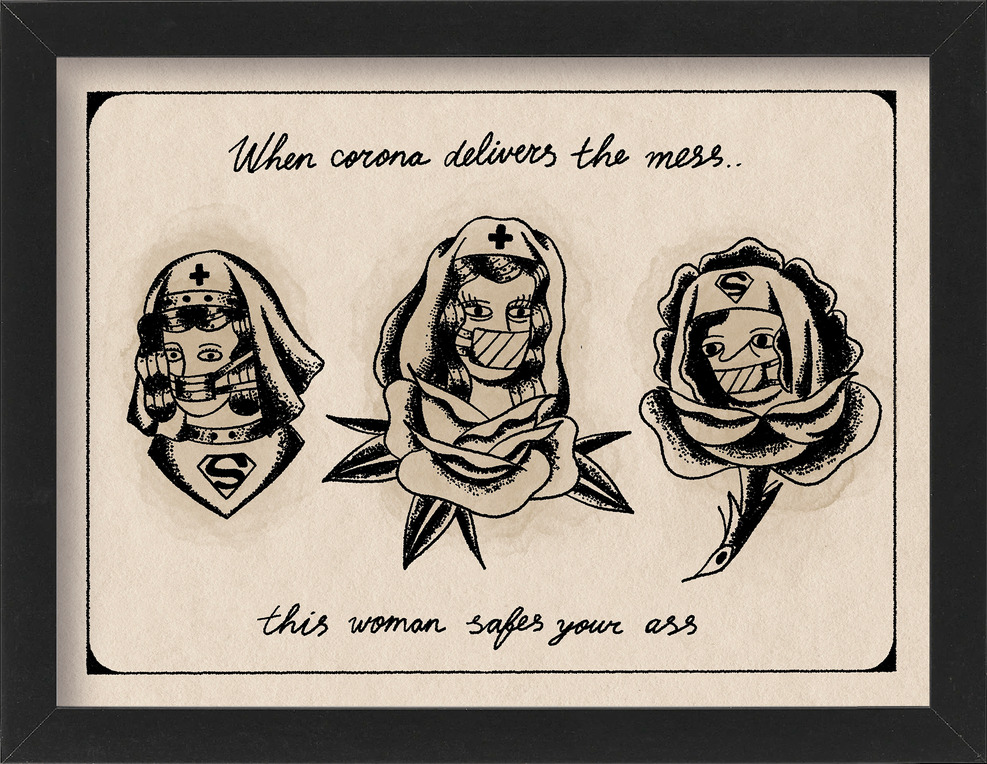 When corona delivers the mess..
S
S
this woman safes your ass